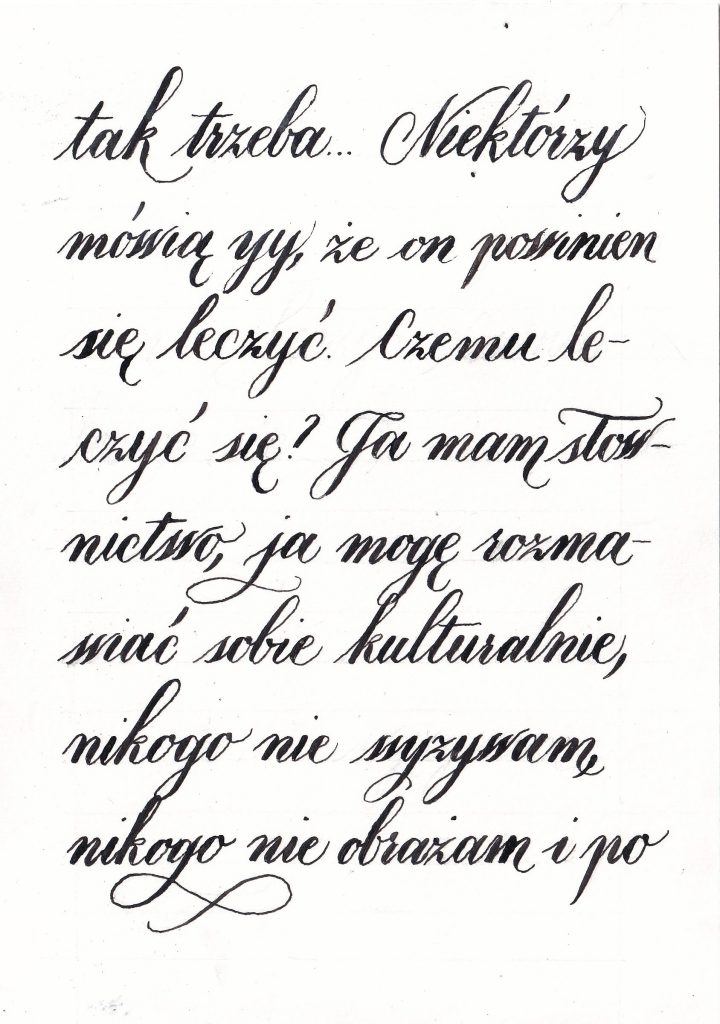 tak trzeba... Niektórzy
mówią yy, że on powinien
się leczyć. Czemu le-
czyć się? Ja mam słow-
nictwo, ja mogę rozma-
wiać sobie kulturalnie,
nikogo nie wyzywam,
nikogo nie obrażam i po